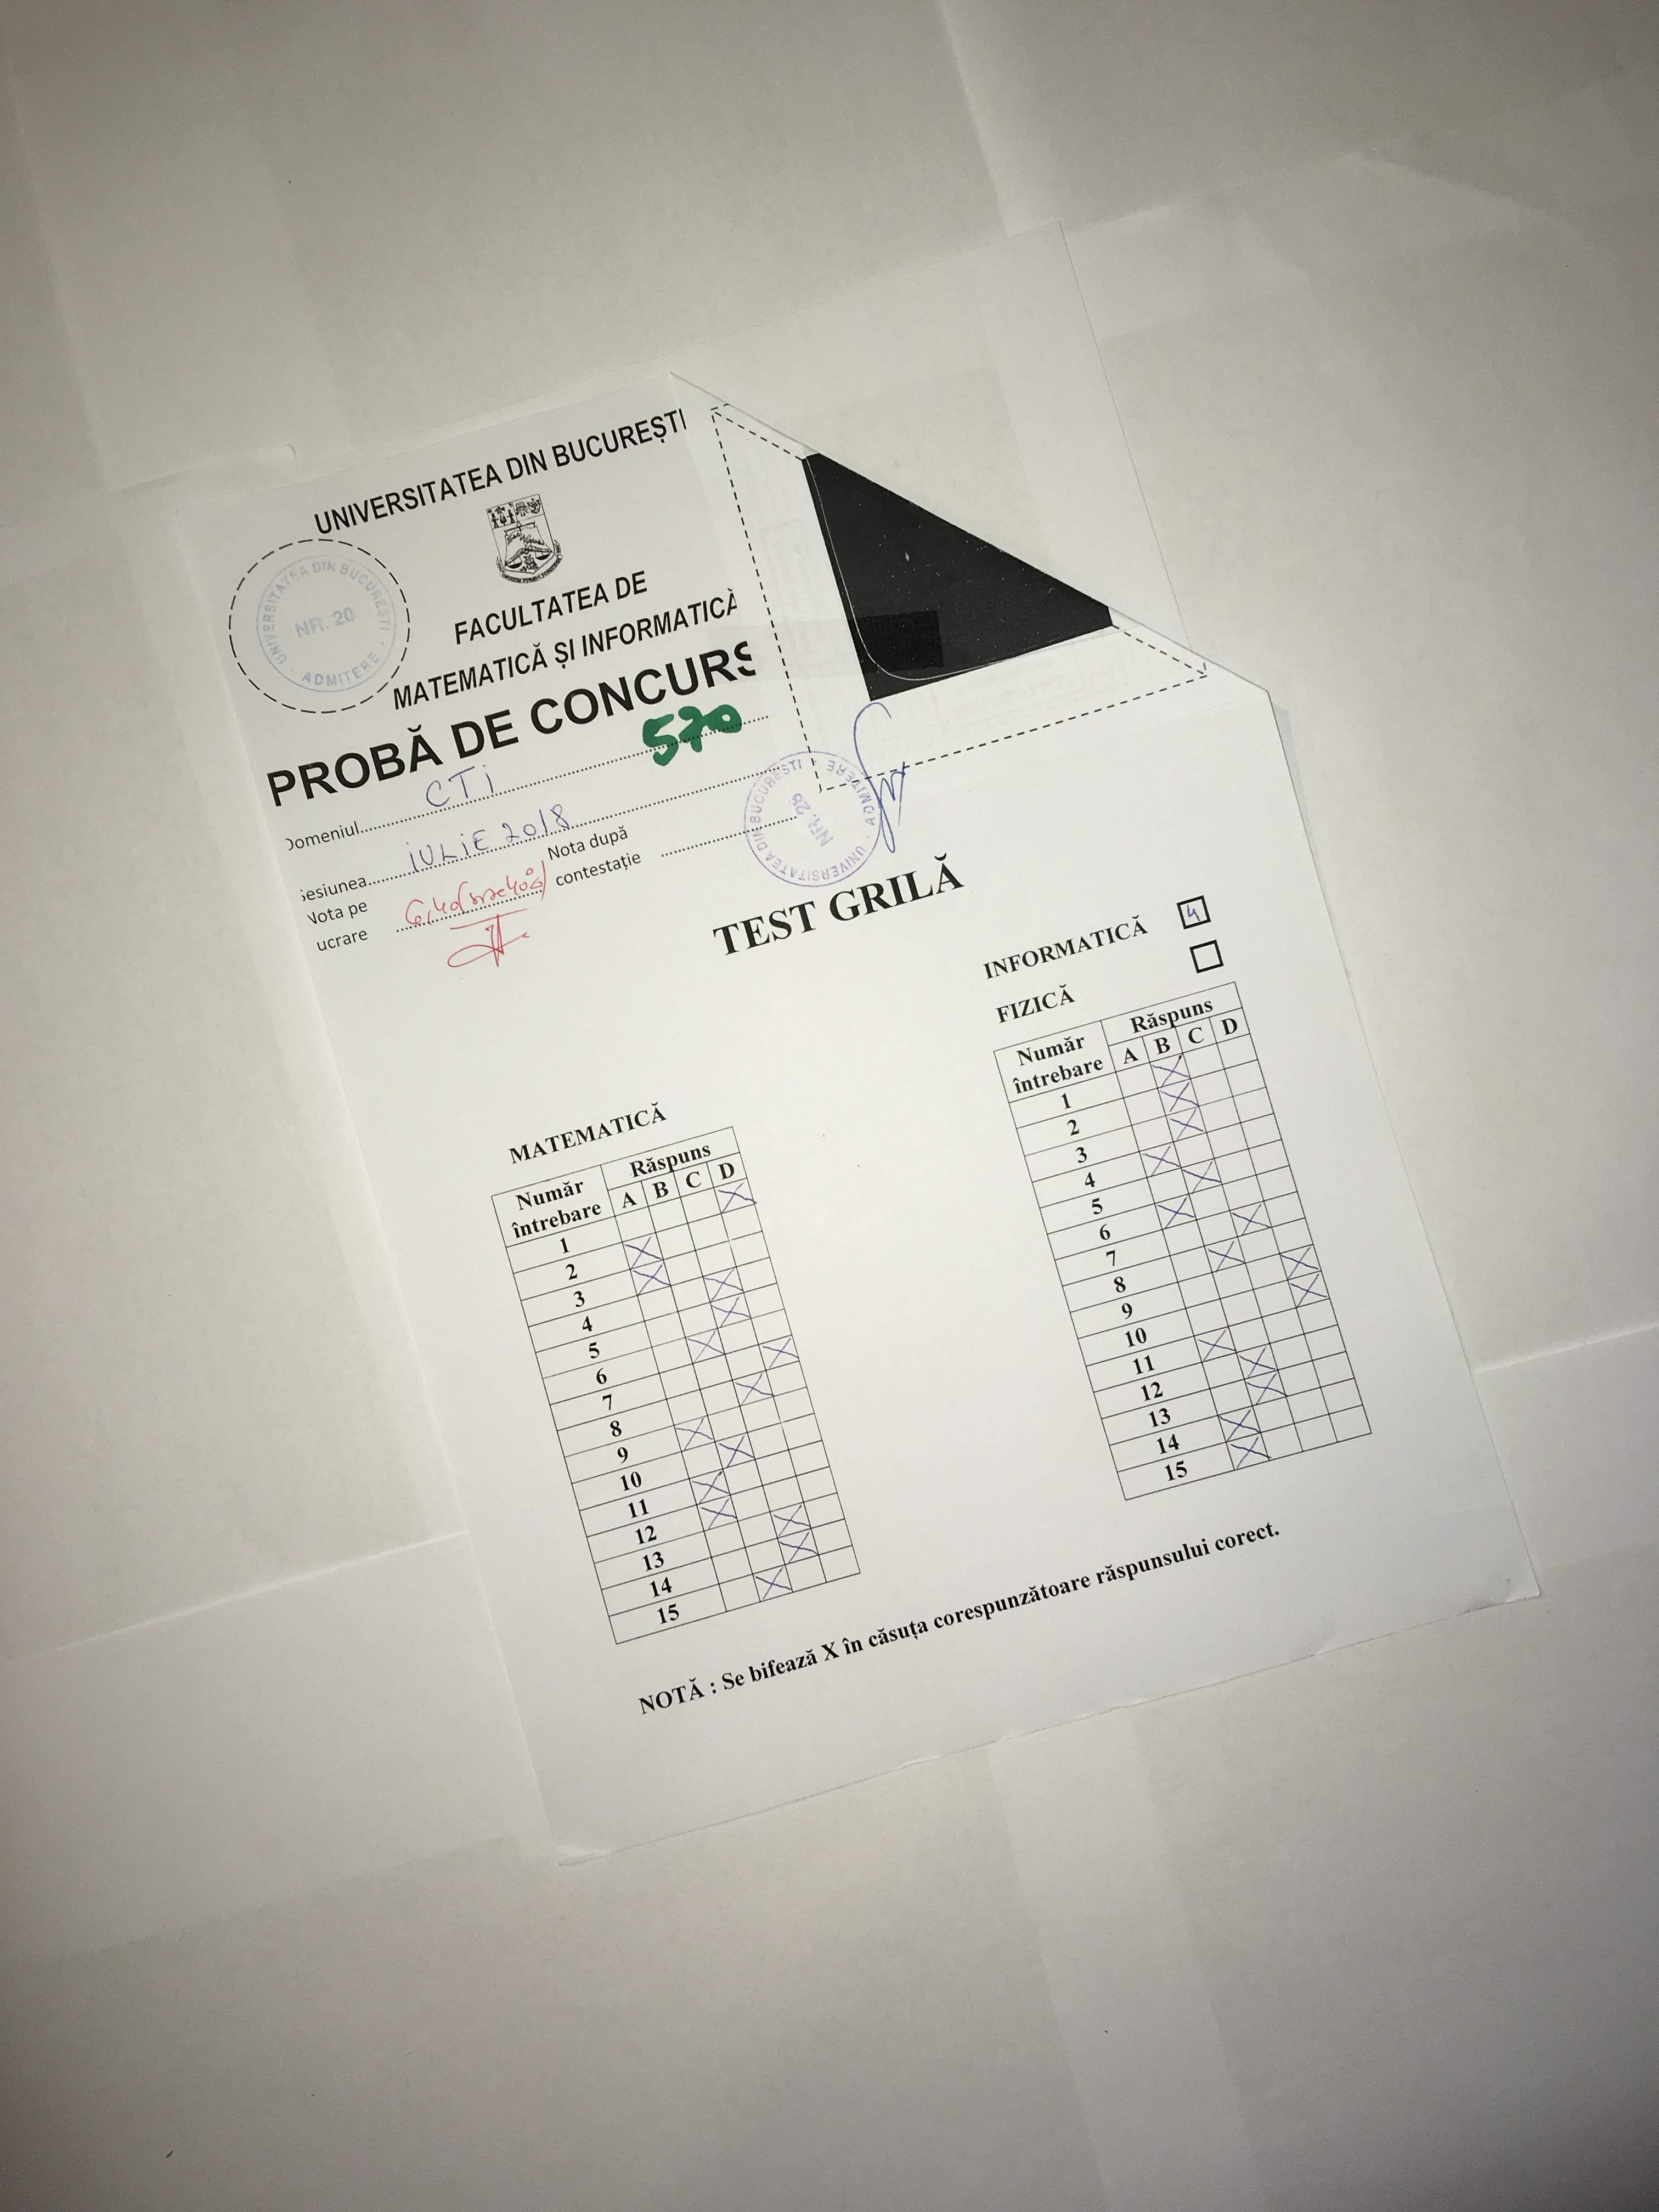 UNIVERSITATEA DIN BUCUREȘTI
UNIVERSITATEA DIN BUCURESTI · ADMITERE ·
NR. 20
FACULTATEA DE
MATEMATICĂ ȘI INFORMATICĂ
PROBĂ DE CONCURS
570
Domeniul CTi
Sesiunea iULiE 2018
Nota pe
ucrare
6,40
Nota după
contestație
UNIVERSITATEA DIN BUCURESTI · ADMITERE ·
TEST GRILĂ
INFORMATICĂ 4
FIZICĂ
Număr întrebare Răspuns
A B C D
1 X
2 X
3 X
4 X
5 X
6 X
7 X
8 X
9 X
10 X
11 X
12 X
13 X
14 X
15 X
MATEMATICĂ
Număr întrebare Răspuns
A B C D
1 X
2 X
3 X
4 X
5 X
6 X
7 X
8 X
9 X
10 X
11 X
12 X
13 X
14 X
15 X
NOTĂ : Se bifează X în căsuța corespunzătoare răspunsului corect.